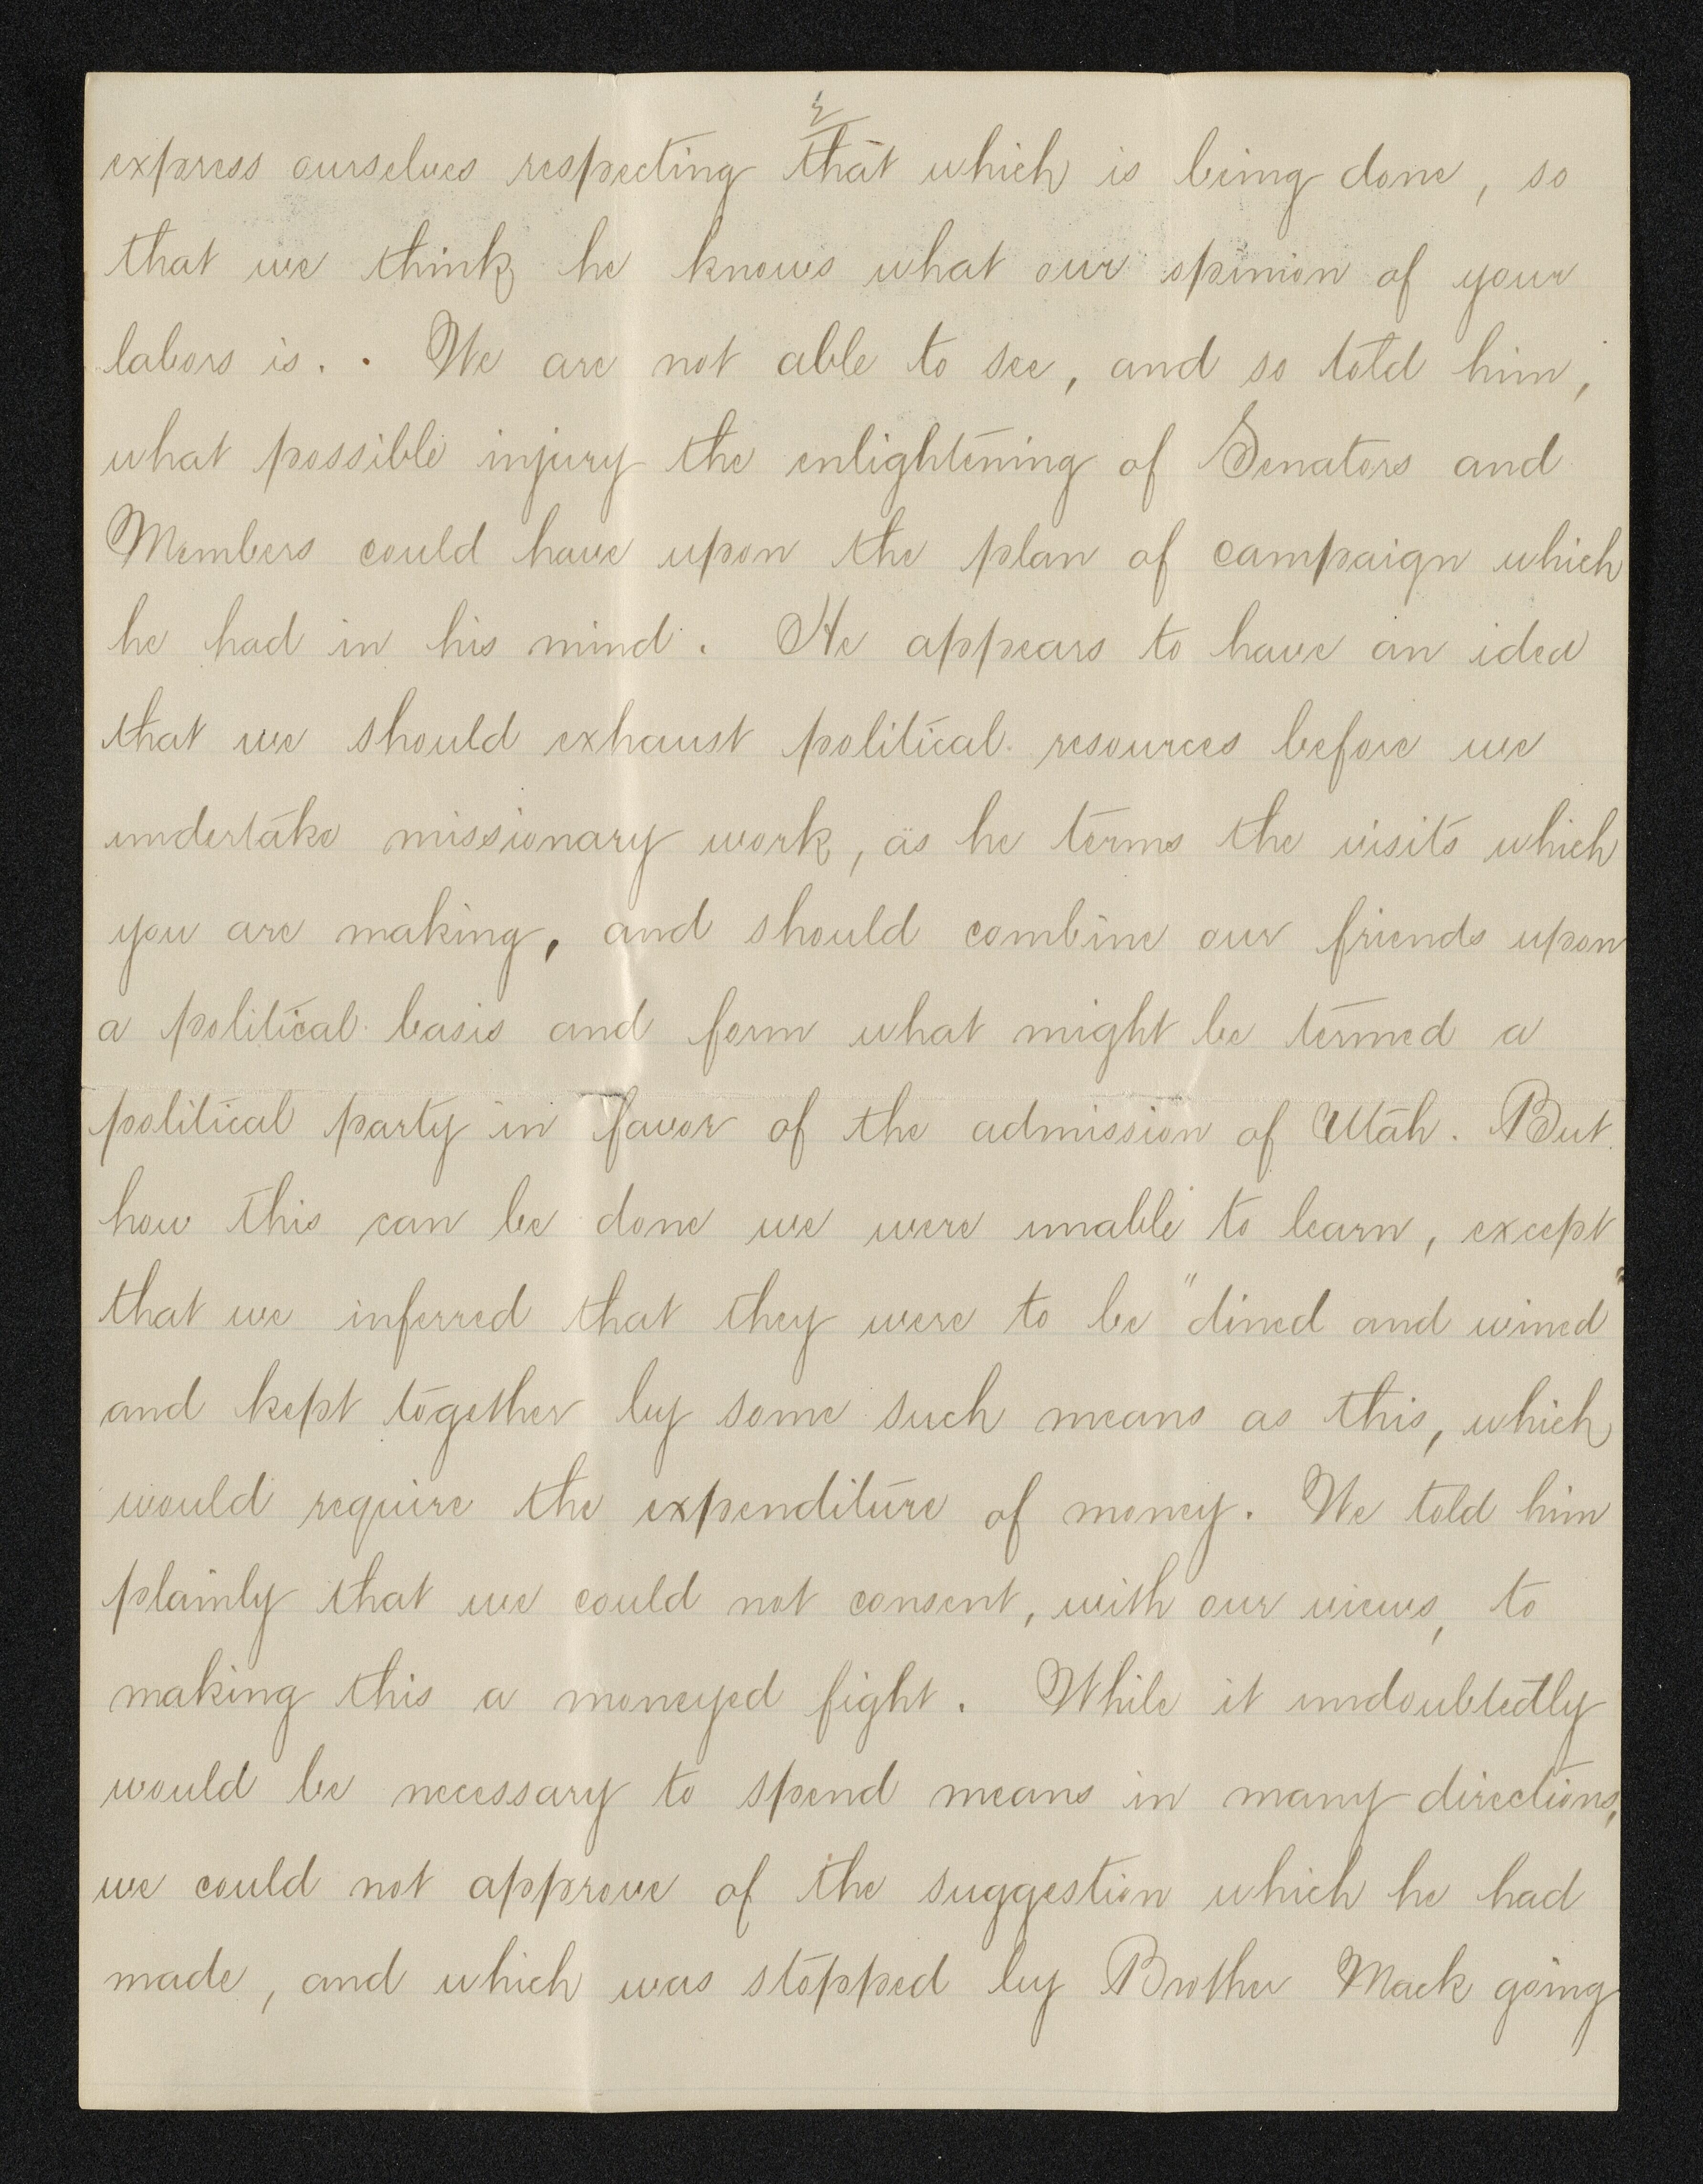 2
express ourselves respecting that which is being done, so
that we think he knows what our opinion of your
labors is. . We are not able to see, and so told him,
what possible injury the enlightening of Senators and
Members could have upon the plan of campaign which
he had in his mind. He appears to have an idea
that we should exhaust political resources before we
undertake missionary work, as he terms the visits which
you are making, and should combine our friends upon
a political basis and form what might be termed a
political party in favor of the admission of Utah. But
how this can be done we were unable to learn, except
that we inferred that they were to be "dined and wined"
and kept together by some such means as this, which
would require the expenditure of money. We told him
plainly that we could not consent, with our views, to
making this a moneyed fight. While it undoubtedly
would be necessary to spend means in many directions,
we could not approve of the suggestion which he had
made, and which was stopped by Brother Mack going